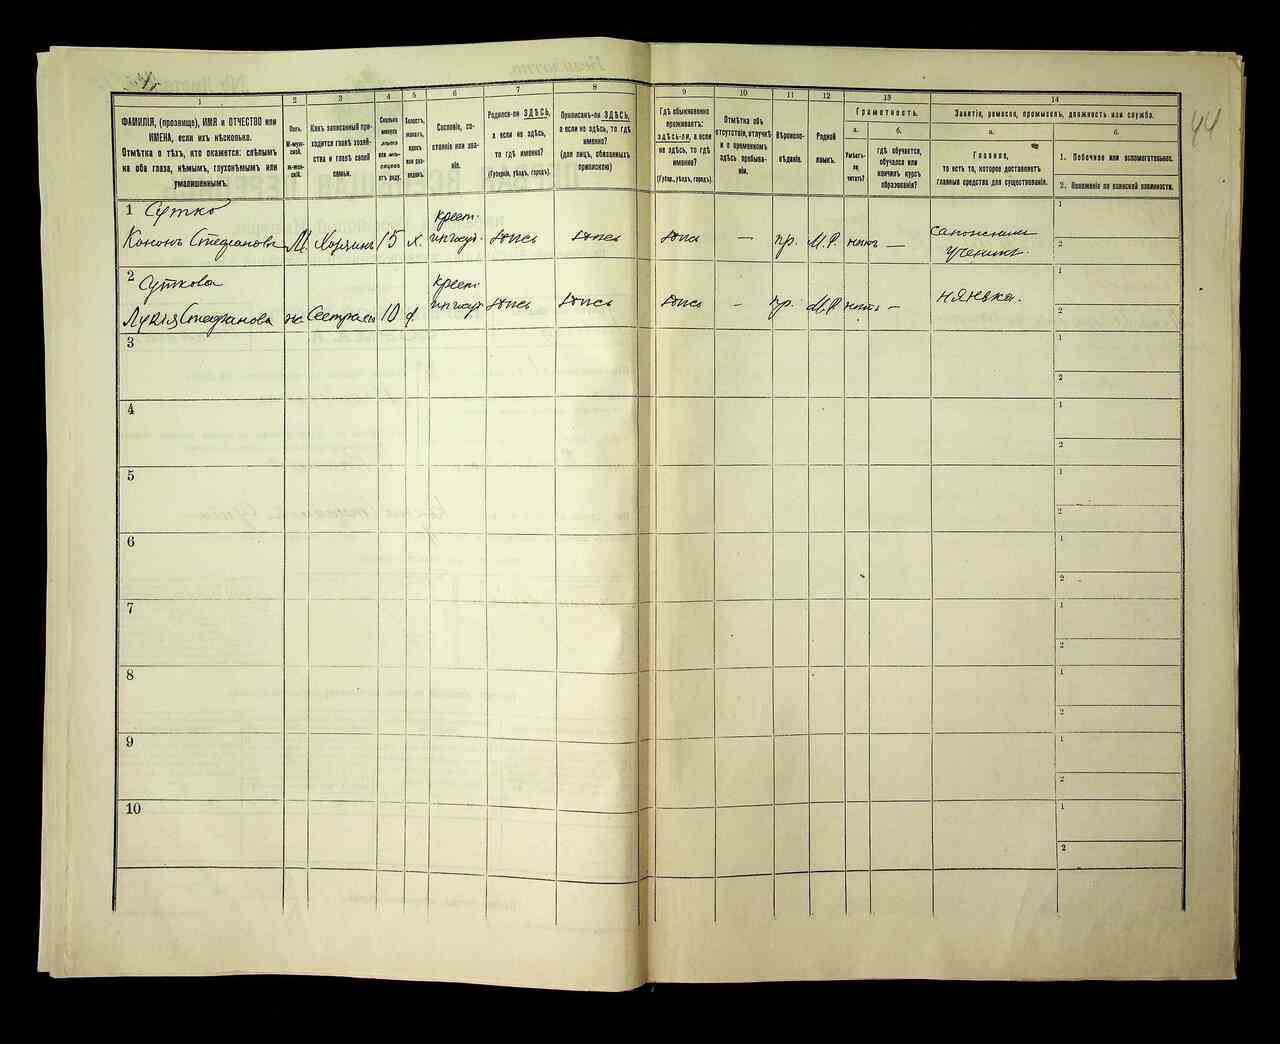 44
1
2
3
4
5
6
7
8
9
10
11
12
13
14
ФАМИЛІЯ, (прозвище), ИМЯ и ОТЧЕСТВО или
ИМЕНА, если ихъ нѣсколько.
Отмѣтка о тѣхъ, кто окажется: слѣпымъ
на оба глаза, нѣмымъ, глухонѣмымъ или
умалишеннымъ.
Полъ.
М-муж-
ской.
Ж-жен-
скій.
Какъ записанный при-
ходится главѣ хозяй-
ства и главѣ своей
семьи.
Сколько
минуло
лѣтъ
или мѣ-
сяцевъ
отъ роду.
Холостъ,
женатъ,
вдовъ
или раз-
веденъ.
Сословіе, со-
стояніе или зва-
ніе.
Родился-ли ЗДѢСЬ,
а если не здѣсь,
то гдѣ именно?
(Губернія, уѣздъ, городъ).
Приписанъ-ли ЗДѢСЬ,
а если не здѣсь, то гдѣ
именно?
(для лицъ, обязанныхъ
припискою)
Гдѣ обыкновенно
проживаетъ:
здѣсь-ли, а если
не здѣсь, то гдѣ
именно?
(Губер., уѣздъ, городъ).
Отмѣтка объ
отсутствіи, отлучкѣ
и о временномъ
здѣсь пребыва-
ніи.
Вѣроиспо-
вѣданіе.
Родной
языкъ.
Грамотность.
а.
Умѣетъ-
ли
читать?
б.
гдѣ обучается,
обучался или
кончилъ курсъ
образованія?
Занятіе, ремесло, промыселъ, должность или служба.
а.
Главное,
то есть то, которое доставляетъ
главныя средства для существованія.
б.
1. Побочное или вспомогательное.
2. Положеніе по воинской повинности.
1 Сутко
Кононъ Стефановъ М Хозяинъ 15 х. Крест. здѣсь здѣсь здѣсь — пр. М.Р. нѣтъ —
сапожный
ученикъ
1
2
2 Суткова
Лукія Стефанова ж Сестра 10 Крест. здѣсь здѣсь здѣсь — пр. М.Р. нѣтъ — нянька.
1
2
3
1
2
4
1
2
5
1
2
6
1
2
7
1
2
8
1
2
9
1
2
10
1
2